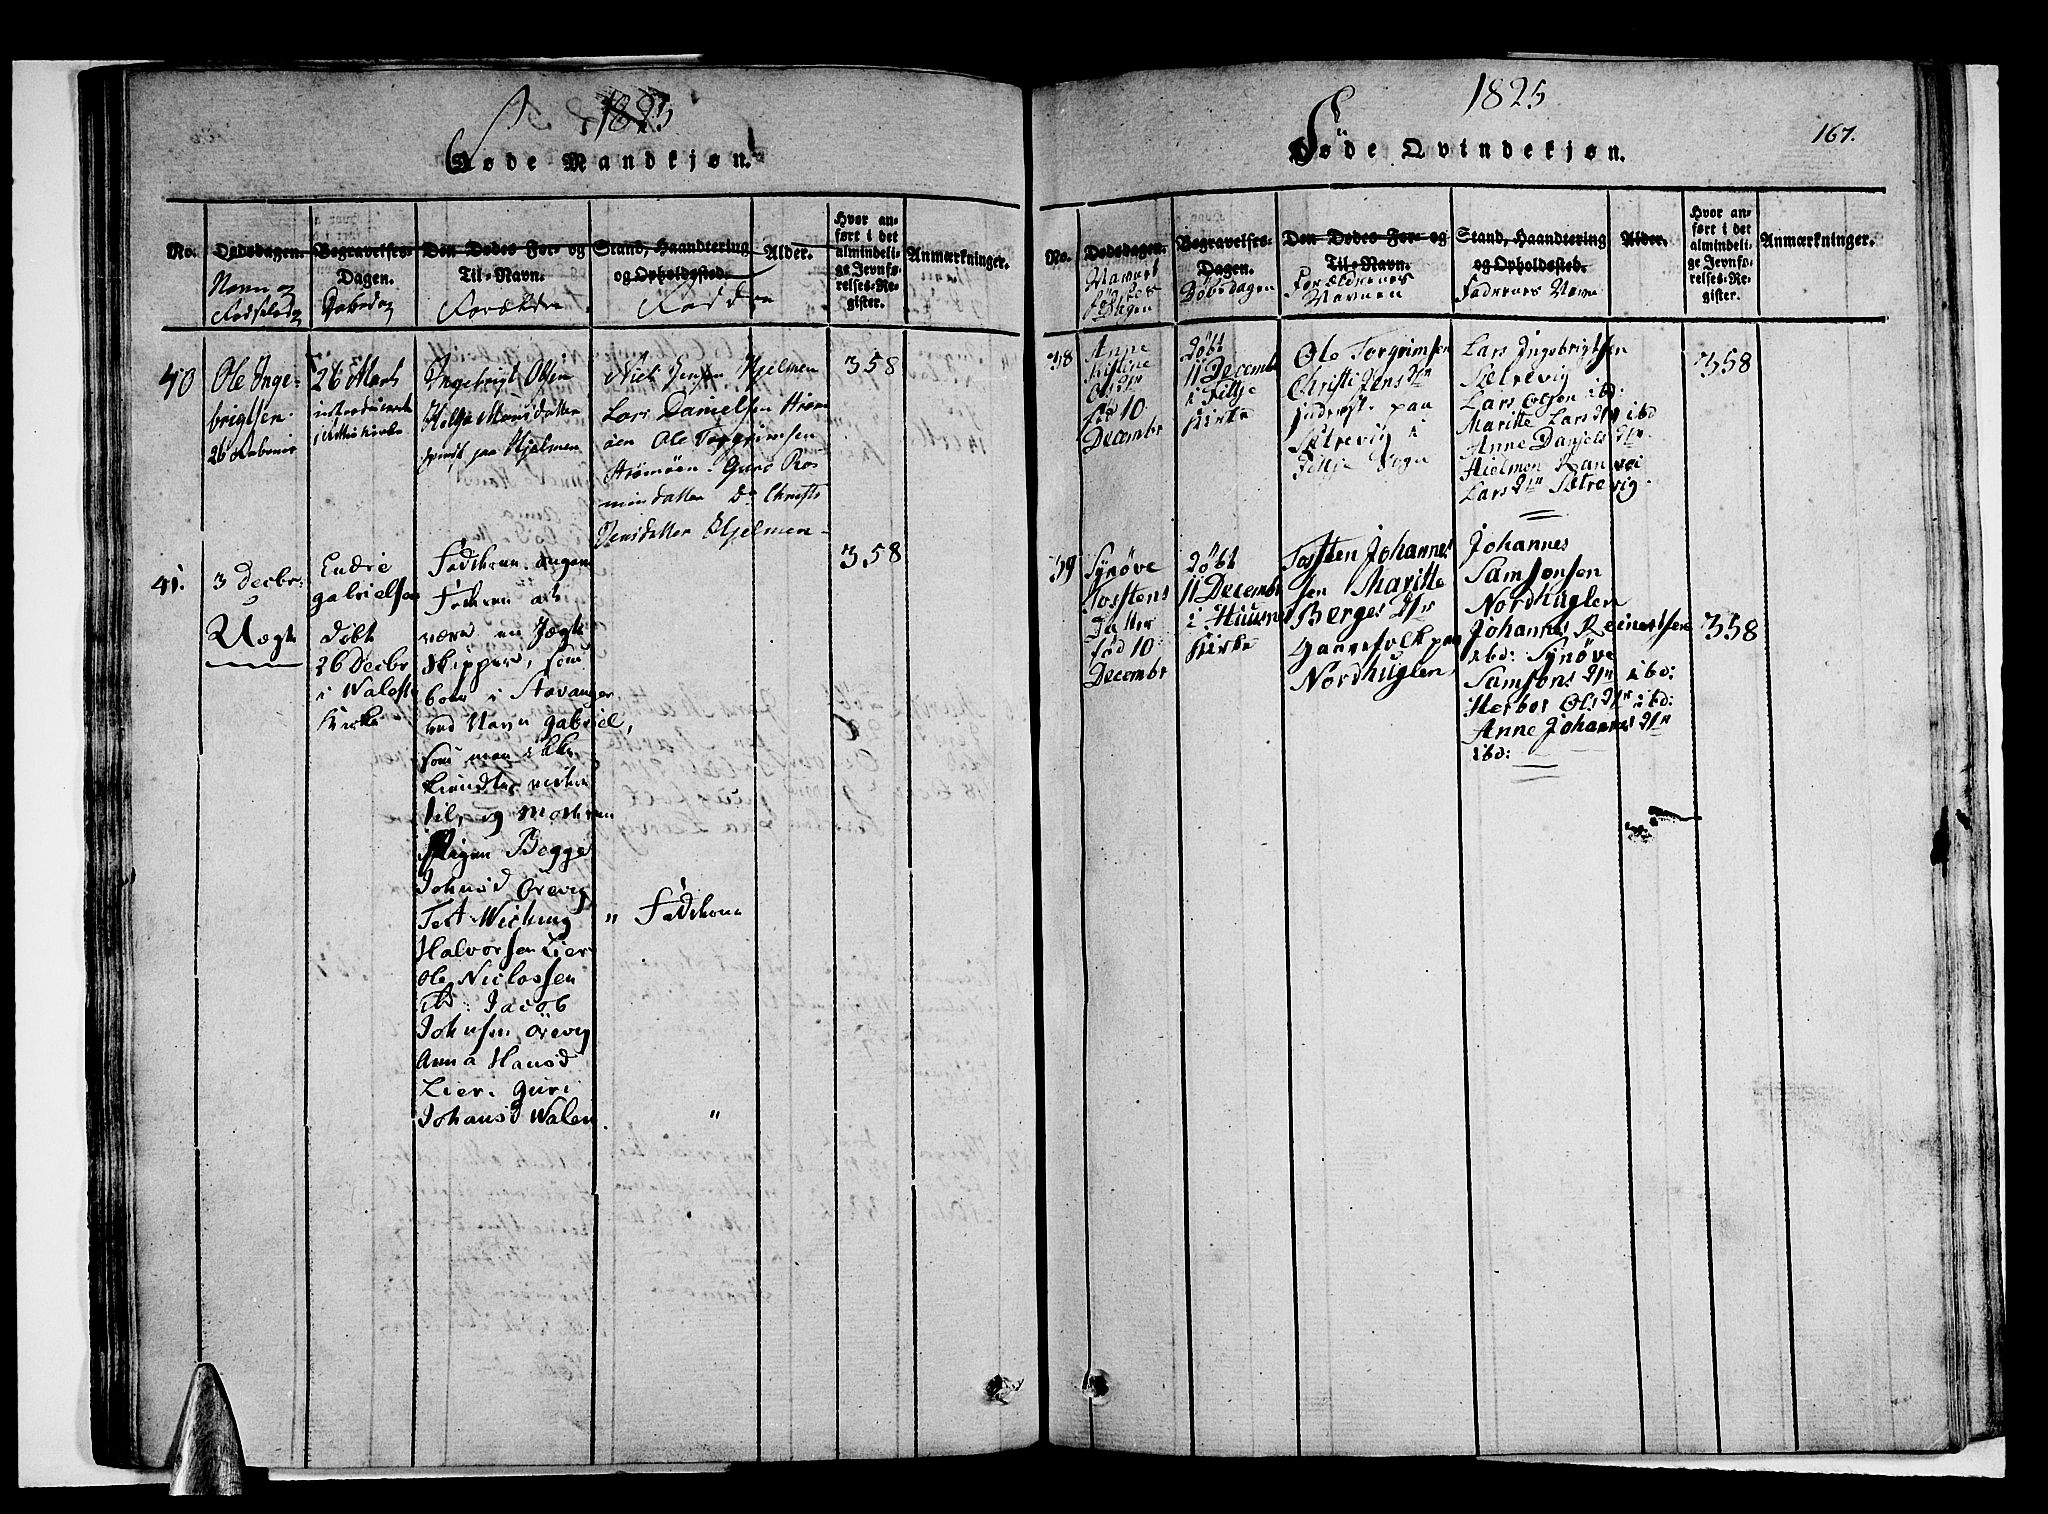 1825
Føde Mandkjøn.
No.
Dødsdagen.
Navn og
Begravelses-
Dagen.
Døbedag
Den Dødes For- og
Til-Navn.
Forældre
Stand, Haandtering
og Opholdssted.
Faddre
Alder.
Hvor an-
ført i det
almindeli-
ge Jevnfø-
relses-Re-
gister.
Anmærkninger.
40
Ole Inge-
brigtsen
26
26 Marts
introduceret
Ingebrigt Olsen
Helga Monsdatter
paa Hjelmen
Niels Jensen Hjelmen
Lars Danielsen Strøm
øen Ole Torgrimsen
Strømøen. Guro Ras
musdatter Do Christi
Jensdatter Hjelmen
358
41.
3 Decbr:
Uægte
Endre
gabrielsen
døbt
26 Decbr
i Walestr
Kirke
Fødekonen angav
Fadren at
være en Jægte
Skipper, som
boer i Stavanger
ved Navn gabriel,
som man ikke
kiendte videre
til, og Modren
Pigen Begge
Johnsd Örevig
Test. Wiching
Halvorsen Lier
Ole Niclossen
ibd: Jacob
Johnsen Örevig
Anna Hansd
Lier. Guri
Johansd Walen.
" Fødekone
"
358
1825
167.
Føde Qvindekjøn.
No.
Dødsdagen.
Navnet
Fødsels
Dagen
Begravelses-
Dagen.
Døbsdagen
Den Dødes For- og
Til-Navn.
Forældrenes
Navnen
Stand, Haandtering
og Opholdssted.
Faddernes Navne
Alder.
Hvor an-
ført i det
almindeli-
ge Jevnfø-
relses-Re-
gister.
Anmærkninger.
38
Anne
Kistine
Ols Dtr
fød 10
Decembr
døbt
11 Decembr
i Fittje
Kirke
Ole Torgrimsen
Christi Jens Dtr
inderst paa
Sætrevig i
Fittje Sogn
Lars Ingebrigtsen
Sætrevig
Lars Olson ibd:
Maritte Lars Dtr ibd
Anne Daniels Dtr
Hielmen Ranvei
Lars Dtr Sætrevig.
358
39
Synöve
Tostens
Datter
fød 10
Decembr
døbt
11 Decembr
i Huusnes
Kirke
Tosten Johannes
sen Maritte
Berges Dtr
Gaardfolk paa
Nordhuglen
Johannes
Samsonsen
Nordhuglen
Johannes Reinertsen
ibd: Synöve
Samsons Dtr ibd:
Herbor Ols Dtr ibd:
Anne Johannes Dtr
ibd:
358